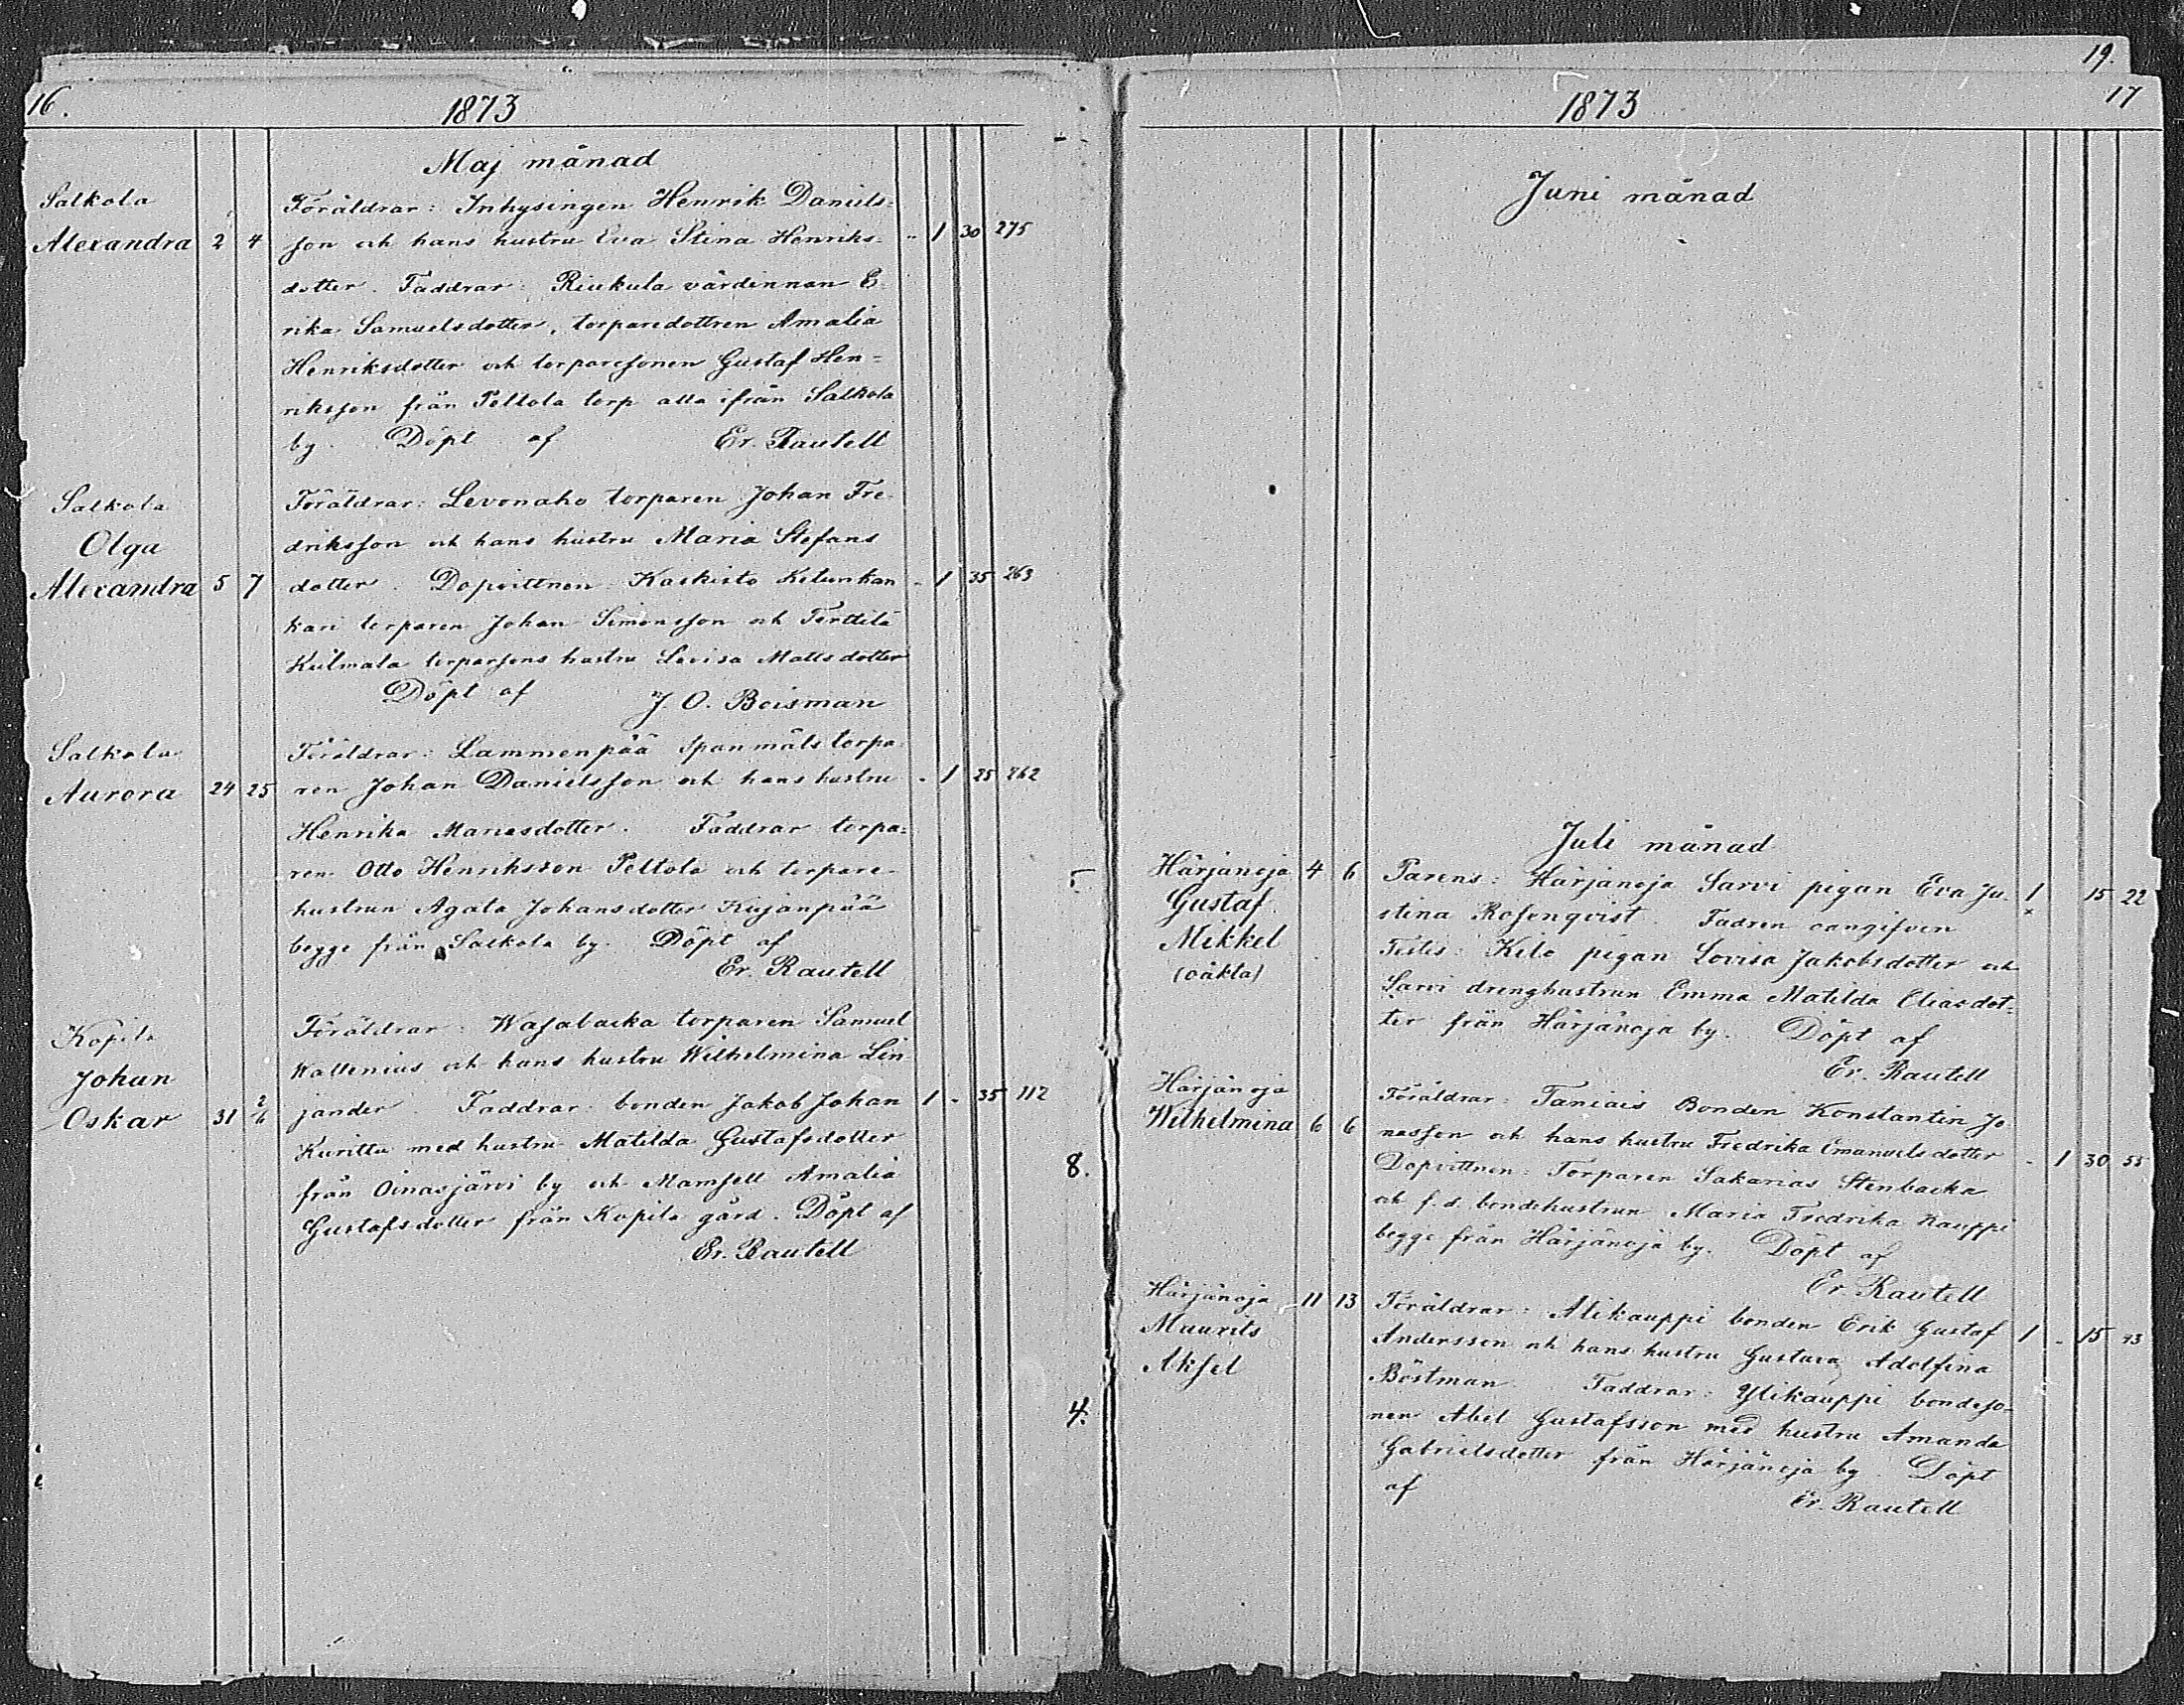 16.
1873
Maj månad
Salkola
Föräldrar: Inhysingen Henrik Daniels-
Alexandra 2 4 son och hans hustru Eva Stina Henriks- - 1 30 275
dotter. Faddrar: Riukula värdinnan E-
rika Samuelsdotter, torparedottren Amalia
Henriksdotter och torparesonen Gustaf Hen=
riksson från Peltola torp alla ifrån Salkola
by. Döpt af Er. Rautell
Salkola
Föräldrar: Levonaho torparen Johan Fre-
Olga
driksson och hans hustru Maria Stefans
Alexandra 5 7 dotter. Dopvittnen Kaskisto Ketunkan
- 1 35 263
kari torparen Johan Simonsson och Terttilä
Kulmala torparsons hustru Lovisa Mattsdotter
Döpt af J. O. Boisman
Salkola
Föräldrar: Lammenpää spanmåls torpa-
Aurora 24 25 ren Johan Danielsson och hans hustru - 1 25 262
Henrika Mariasdotter. Faddrar torpa=
ren Otto Henriksson Peltola och torpare-
hustrun Agata Johansdotter Kujanpää
begge från Salkola by. Döpt af
Er. Rautell
Kopila
Föräldrar: Wasabacka torparen Samuel
Johan
Wallenius och hans hustru Wilhelmina Lin-
Oskar 31 2/6 jander. Faddrar: bonden Jakob Johan 1 - 35 112
Kuritta med hustru Matilda Gustafsdotter
från Oinasjärvi by och Mamsell Amalia
Gustafsdotter från Kopila gård. Döpt af
Er. Rautell
8.
4.
19.
17
1873
Juni månad
Juli månad
Härjänoja 4 6 Parens: Härjänoja Sarvi pigan Eva Ju- 1 15 22
Gustaf
stina Rosenqvist. Fadren oangifven
x
Mikkel
Testes: Kilo pigan Lovisa Jakobsdotter och
(oäkta)
Sarvi drenghustrun Emma Matilda Eliasdot-
ter från Härjänoja by. Döpt af
Er. Rautell
Härjänoja
Föräldrar: Taniais Bonden Konstantin Jo
Wilhelmina 6 6 nasson och hans hustru Fredrika Emanuelsdotter
- 1 30 55
Dopvittnen: Torparen Sakarias Stenbacka
och f. d. bondehustrun Maria Fredrika Kauppi
begge från Härjänoja by. Döpt af
Er. Rautell
Härjänoja 11 13 Föräldrar: Alikauppi bonden Erik Gustaf 1 - 15 43
Maurits
Andersson och hans hustru Gustava Adolfina
Aksel
Böstman Faddrar: Ylikauppi bondeso-
nen Abel Gustafsson med hustru Amanda
Gabrielsdotter från Härjänoja by. Döpt
af
Er. Rautell